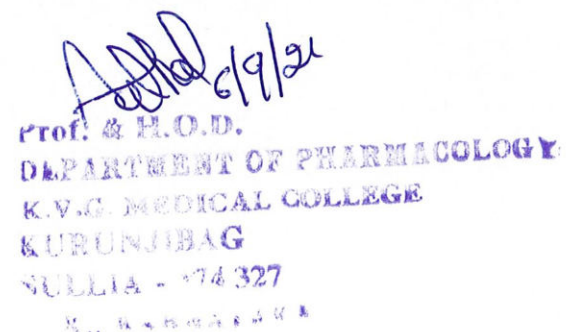 6/9/21
Prof. & H.O.D.
DEPARTMENT OF PHARMACOLOGY
K.V.G. MEDICAL COLLEGE
KURUNJIBAG
SULLIA - 574 327